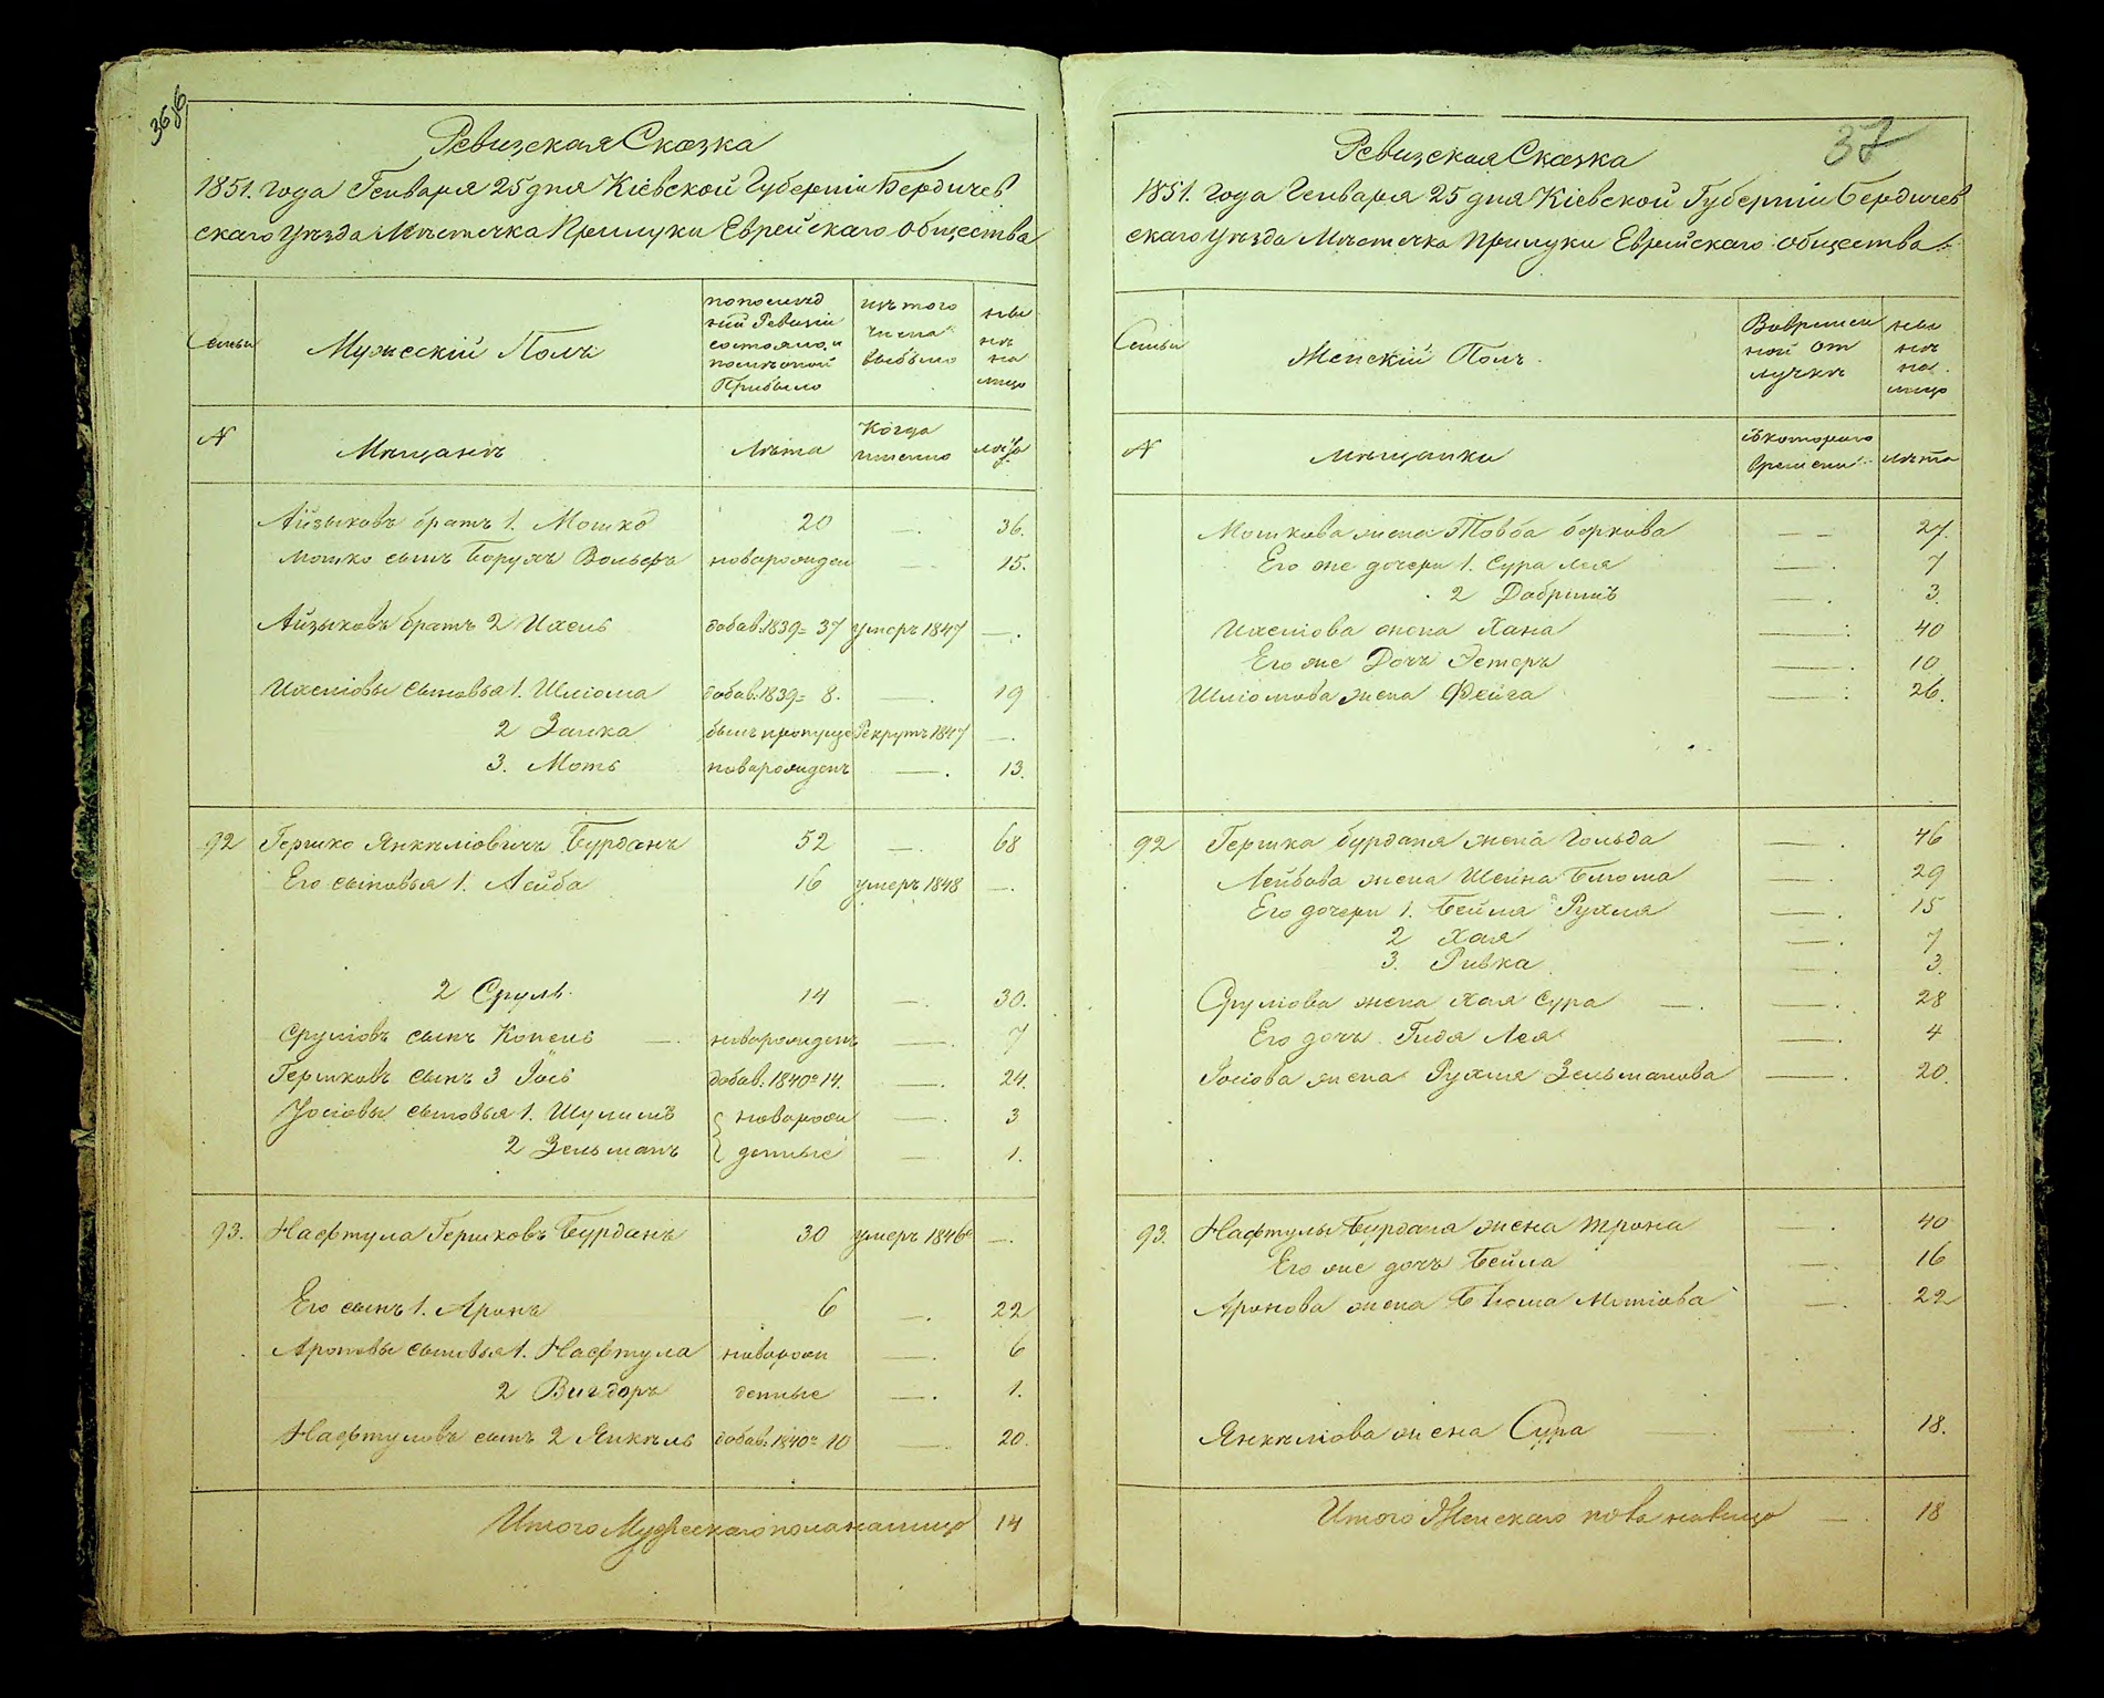 36об
Ревизская Сказка
1851. года Генваря 25 дня Кіевской Губерніи Бердичев
скаго уѣзда Мѣстечка Прилуки Еврейскаго общества
Семьи
Мужескій Полъ
по послѣд
ней Ревизіи
состояло и
послѣ оной
Прибыло
изъ того
числа
выбыло
ны
нѣ
на
лицо
N
Мѣщанѣ
Лѣта
Когда
именно
лѣта
Айзыковъ братъ 1. Мошко 20 —. 36.
Мошко сынъ Борухъ Вольфъ новорожден — 15.
Айзыковъ братъ 2 Ихель добав. 1839= 37 умеръ 1847 —.
Ихеліовы сыновья 1. Шліома добав. 1839= 8. —. 19
2 Замка былъ пропущ Рекрутъ 1847 —.
3. Моть новорожденъ —. 13.
92 Гершко Янкеліовичъ Бурданъ 52 —. 68
Его сыновья 1. Лейба 16 умеръ 1848 —.
2 Сруль 14 —. 30.
Сруліовъ сынъ Копель —. новорожденъ —. 7
Гершковъ сынъ 3 Іось добав. 1840= 14. —. 24.
Іосіовы сыновья 1. Шулимъ новорож —. 3
2 Зельманъ денные — 1.
93. Нафтула Гершковъ Бурданъ 30 умеръ 1846 —.
Его сынъ 1. Аронъ 6 —. 22
Ароновы сыновья 1. Нафтула новорож —. 6
2 Вигдоръ денные —. 1.
Нафтуловъ сынъ 2 Янкель добав. 1840= 10 —. 20.
Итого Мужескаго пола налицо 14
37
Ревизская Сказка
1851. года Генваря 25 дня Кіевской Губерніи Бердичев
скаго уѣзда Мѣстечка Прилуки Еврейскаго общества
Семьи
Женскій Полъ.
Во времен
ной от
лучкѣ
ны
нѣ
на
лицо
N
Мѣщанки
съ котораго
времени
лѣта
Мошкова жена Товба Беркова — — 27.
Его же дочери 1. Сура Лея —. 7
2 Добришъ —. 3.
Ихеліова жена Хана —: 40
Его же Дочь Эстеръ —. 10
Шліомова жена Фейга —: 26.
92 Гершка Бурдана жена Гольда —. 46
Лейбова жена Шейна Блюма —. 29
Его дочери 1. Бейла Рухля —. 15
2 Хая —. 7
3. Ривка —. 3.
Сруліова жена Хая Сура —. —. 28
Его дочь Гидя Лея —. 4
Іосіова жена Рухля Зельманова —. 20.
93. Нафтулы Бурдана жена Трона —. 40
Его же дочь Бейла —. 16
Аронова жена Блюма —. 22
Янкеліова жена Сура —. 18.
Итого Женскаго пола налицо —. 18